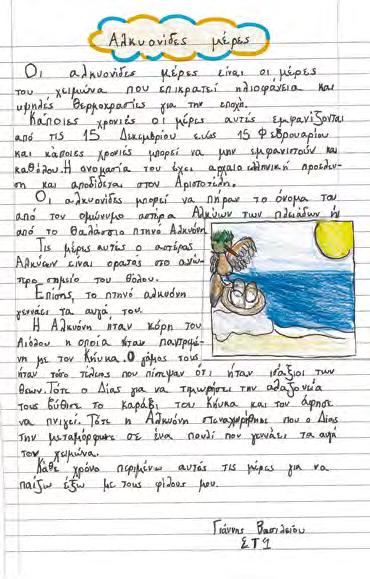 Αλκυονίδες μέρες
Οι αλκυονίδες μέρες είναι οι μέρες
του χειμώνα που επικρατεί ηλιοφάνεια και
υψηλές θερμοκρασίες για την εποχή.
Κάποιες χρονιές οι μέρες αυτές εμφανίζονται
από τις 15 Δεκεμβρίου εώς 15 Φεβρουαρίου
και κάποιες χρονιές μπορεί να μην εμφανιστούν και
καθόλου. Η ονομασία του έχει αρχαιοελληνική προέλευ-
ση και αποδίδεται στον Αριστοτέλη.
Οι αλκυονίδες μπορεί να πήραν το όνομα του
από τον ομώνυμο αστέρα Αλκύων των πλειάδων ή
από το θαλάσσιο πτηνό Αλκυόνη.
Τις μέρες αυτές ο αστέρας
Αλκύων είναι ορατός στο ανώ-
τερο σημείο του θόλου.
Επίσης, το πτηνό αλκυόνη
γεννάει τα αυγά του.
Η Αλκυόνη ήταν κόρη του
Αιόλου η οποία ήταν παντρεμέ-
νη με τον Κήυκα. Ο γάμος τους
ήταν τόσο τέλειος που πίστεψαν ότι ήταν ισάξιοι των
θεων. Τότε ο Δίας για να τιμωρήσει την αλαζονεία
τους βύθισε το καράβι του Κήυκα και τον άφησε
να πνιγεί. Τότε η Αλκυόνη στεναχωρήθηκε που ο Δίας
την μεταμόρφωσε σε ένα πουλί που γεννάει τα αυγά
τον χειμώνα.
Κάθε χρόνο περιμένω αυτές τις μέρες για να
παίξω έξω με τους φίλους μου.
Γιάννης Βασιλείου
ΣΤ1